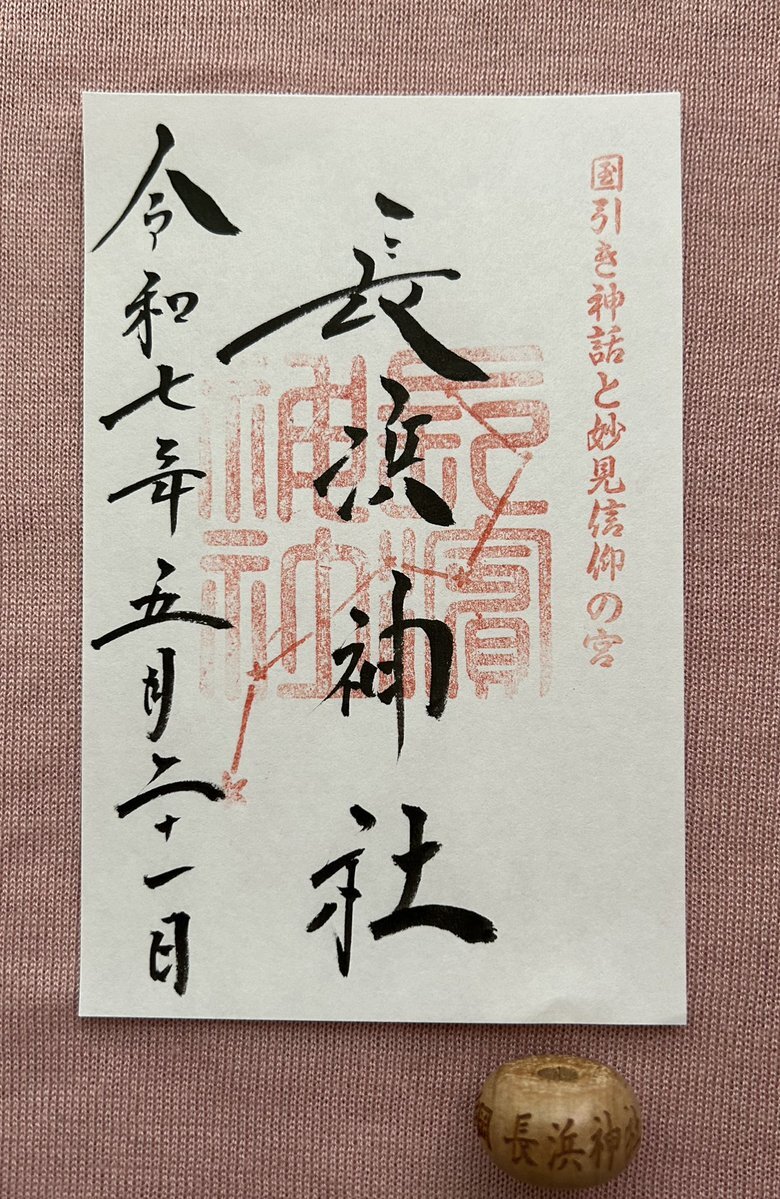 国引き神話と妙見信仰の宮
長浜神社
長濱神社
令和七年五月二十一日
長浜神